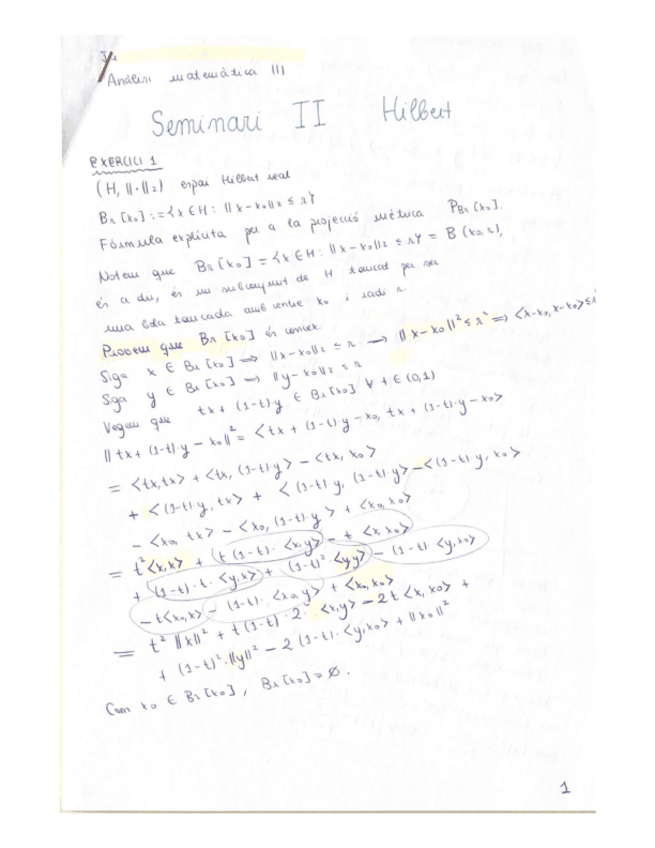 Anàlisi matemàtica III
Seminari II Hilbert
EXERCICI 1
(H, ||·||₂) espai Hilbert real
Br[x₀] := {x ∈ H : ||x-x₀||₂ ≤ r}
Fórmula explícita per a la projecció mètrica P_Br[x₀].
Notem que Br[x₀] = {x ∈ H : ||x-x₀||₂ ≤ r} = B(x₀,r),
és a dir, és un subconjunt de H tancat per ser
una bola tancada amb centre x₀ i radi r.
Provem que Br[x₀] és convex.
Siga x ∈ Br[x₀] ⟹ ||x-x₀||₂ ≤ r → ||x-x₀||² ≤ r² ⟹ <x-x₀, x-x₀> ≤ r²
Siga y ∈ Br[x₀] ⟹ ||y-x₀||₂ ≤ r
Vegem que tx + (1-t)·y ∈ Br[x₀] ∀ t ∈ (0,1)
||tx + (1-t)·y - x₀||² = <tx + (1-t)·y - x₀, tx + (1-t)·y - x₀>
= <tx,tx> + <tx, (1-t)·y> - <tx, x₀>
+ <(1-t)·y, tx> + <(1-t)·y, (1-t)·y> - <(1-t)·y, x₀>
- <x₀, tx> - <x₀, (1-t)·y> + <x₀, x₀>
= t²<x,x> + t(1-t)·<x,y> - t<x,x₀>
+ (1-t)·t·<y,x> + (1-t)²·<y,y> - (1-t)·<y,x₀>
- t<x₀,x> - (1-t)·<x₀,y> + <x₀,x₀>
= t²||x||² + t(1-t)·2·<x,y> - 2t<x,x₀> +
+ (1-t)²·||y||² - 2(1-t)·<y,x₀> + ||x₀||²
Com x₀ ∈ Br[x₀], Br[x₀] ≠ ∅.
1